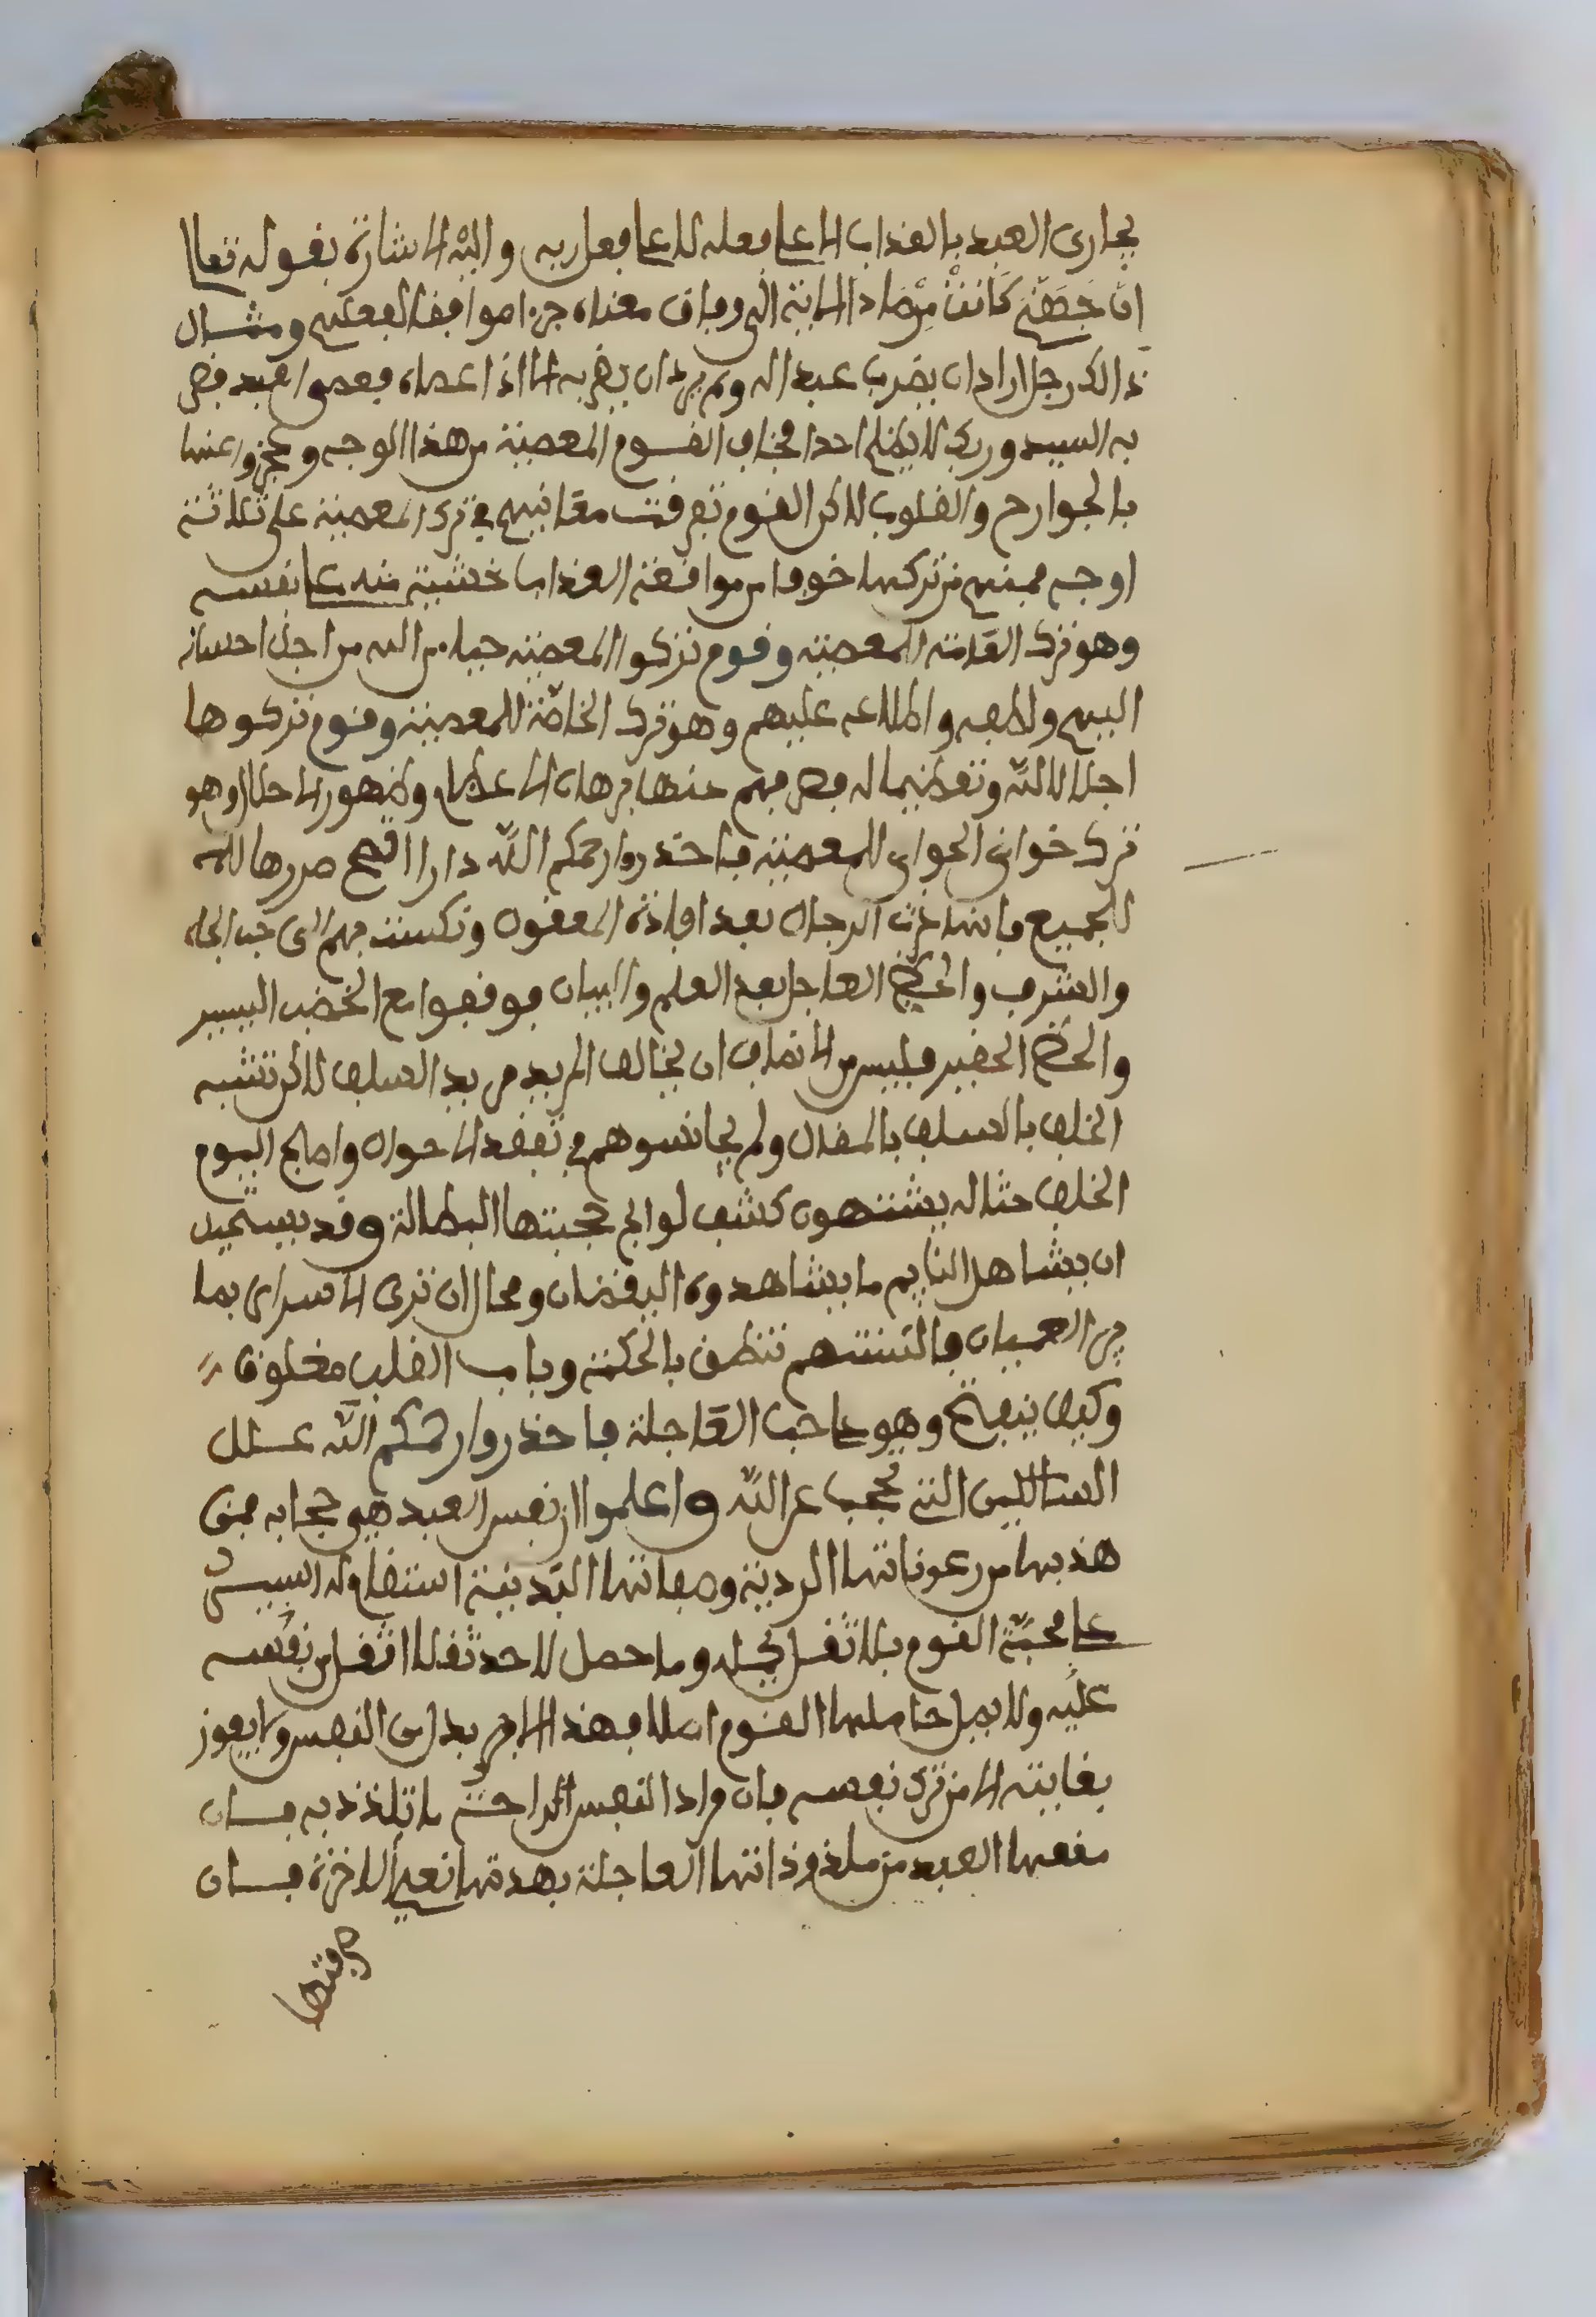 يجازى العبد بالعذاب الا على فعله لا على فعل ربه واليه الاشارة بقوله تعالى
ان جهنم كانت مرصادا الاية الى وفاقا معناه جزاء موافقا لفعلهم ومثال
ذالك رجل اراد ان يضرب عبدا له ولم يرد ان يضربه الا اذا عصاه فعصى العبد فضر
به السيد وربك لا يظلم احدا فخاف القوم المعصية من هذا الوجه وعجزوا عنها
بالجوارح والقلوب لاكن القوم تفرقت معانيهم في ترك المعصية على ثلاثة
اوجه فمنهم من تركها خوفا من موافقة العذاب خشية منه على نفسه
وهو ترك العامة المعصية وقوم تركوا المعصية حياء من الله من اجل احسانه
اليهم ولطفه واطلاعه عليهم وهو ترك الخاصة للمعصية وقوم تركوها
اجلالا لله وتعظيما له فصرفهم عنها برهان الاعظام وظهور الاجلال وهو
ترك خواص الخواص للمعصية فاحذروا رحمكم الله دارا افتح ضررها للامة
للجميع فانها غرت الرجال بعد افادة المعقول ونكست فهم الى حب الجاه
والشرف والحظ العاجل بعد العلم والبيان فوقفوا مع الحظ اليسير
والحظ الحقير فليس من الانصاف ان يخالف المريد مريد السلف لاكن تشبه
الخلف بالسلف بالمقال ولم يجانسوهم في تفقد الاحوال واصبح اليوم
الخلف حثاله يشتهون كشف لوائح حجبتها البطالة وقد يستحيل
ان يشاهد النايم ما يشاهدوه اليقضان ومحال ان ترى الاسرار بما
من العميان فالسنتهم تنطق بالحكمة وباب القلب مغلوق
وكيف ينفتح وهو على حب العاجلة فاحذروا رحمكم الله علل
السالكين التي تحجب عن الله واعلموا ان نفس العبد هي حجابه فمتى
هذبها من رعوناتها الردية وصفاتها الدنية استقام له السير
على محبة القوم بلا ثقل يحمله وما حصل لاحد ثقلا اثقل من نفسه
عليه ولا يصل حاملها القوم اصلا فهذا الامر يدل على النفس ولا يفوز
بغايته الا من ترك نفسه فان مراد النفس الراحة ما تلذذ به فان
منعها العبد من ملذوذاتها العاجلة بهدتها نعيم الاخرة فان
عرفتها